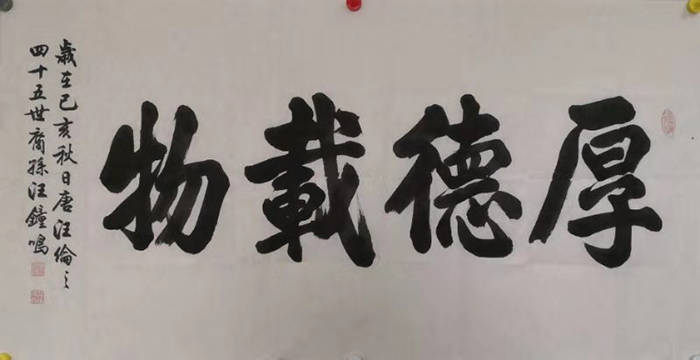 厚德載物
歲在己亥秋日唐汪倫之
四十五世裔孫汪鐘鳴